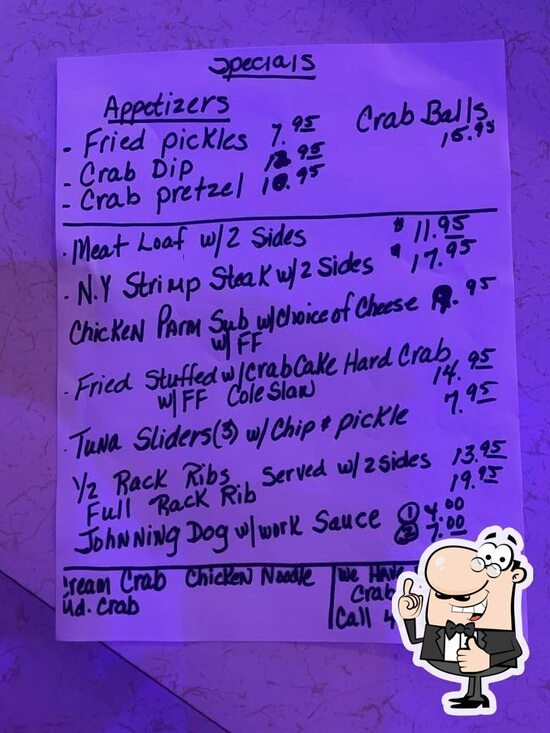 Specials
Appetizers
- Fried pickles 7.95 Crab Balls
15.95
- Crab Dip 12.95
- Crab pretzel 10.95
· Meat Loaf w/2 Sides $ 11.95
· N.Y Strimp Steak w/2 Sides $ 17.95
Chicken Parm Sub w/choice of Cheese .95
w/FF
· Fried Stuffed w/Crab Cake Hard Crab
w/FF Cole Slaw 14.95
· Tuna Sliders(3) w/ Chip & pickle 7.95
1/2 Rack Ribs Served w/ 2 sides 13.95
Full Rack Rib 19.95
Johnning Dog w/work Sauce ① 4.00
② 7.00
Cream Crab Chicken Noodle
Md. Crab
We Have
Crab
Call 4